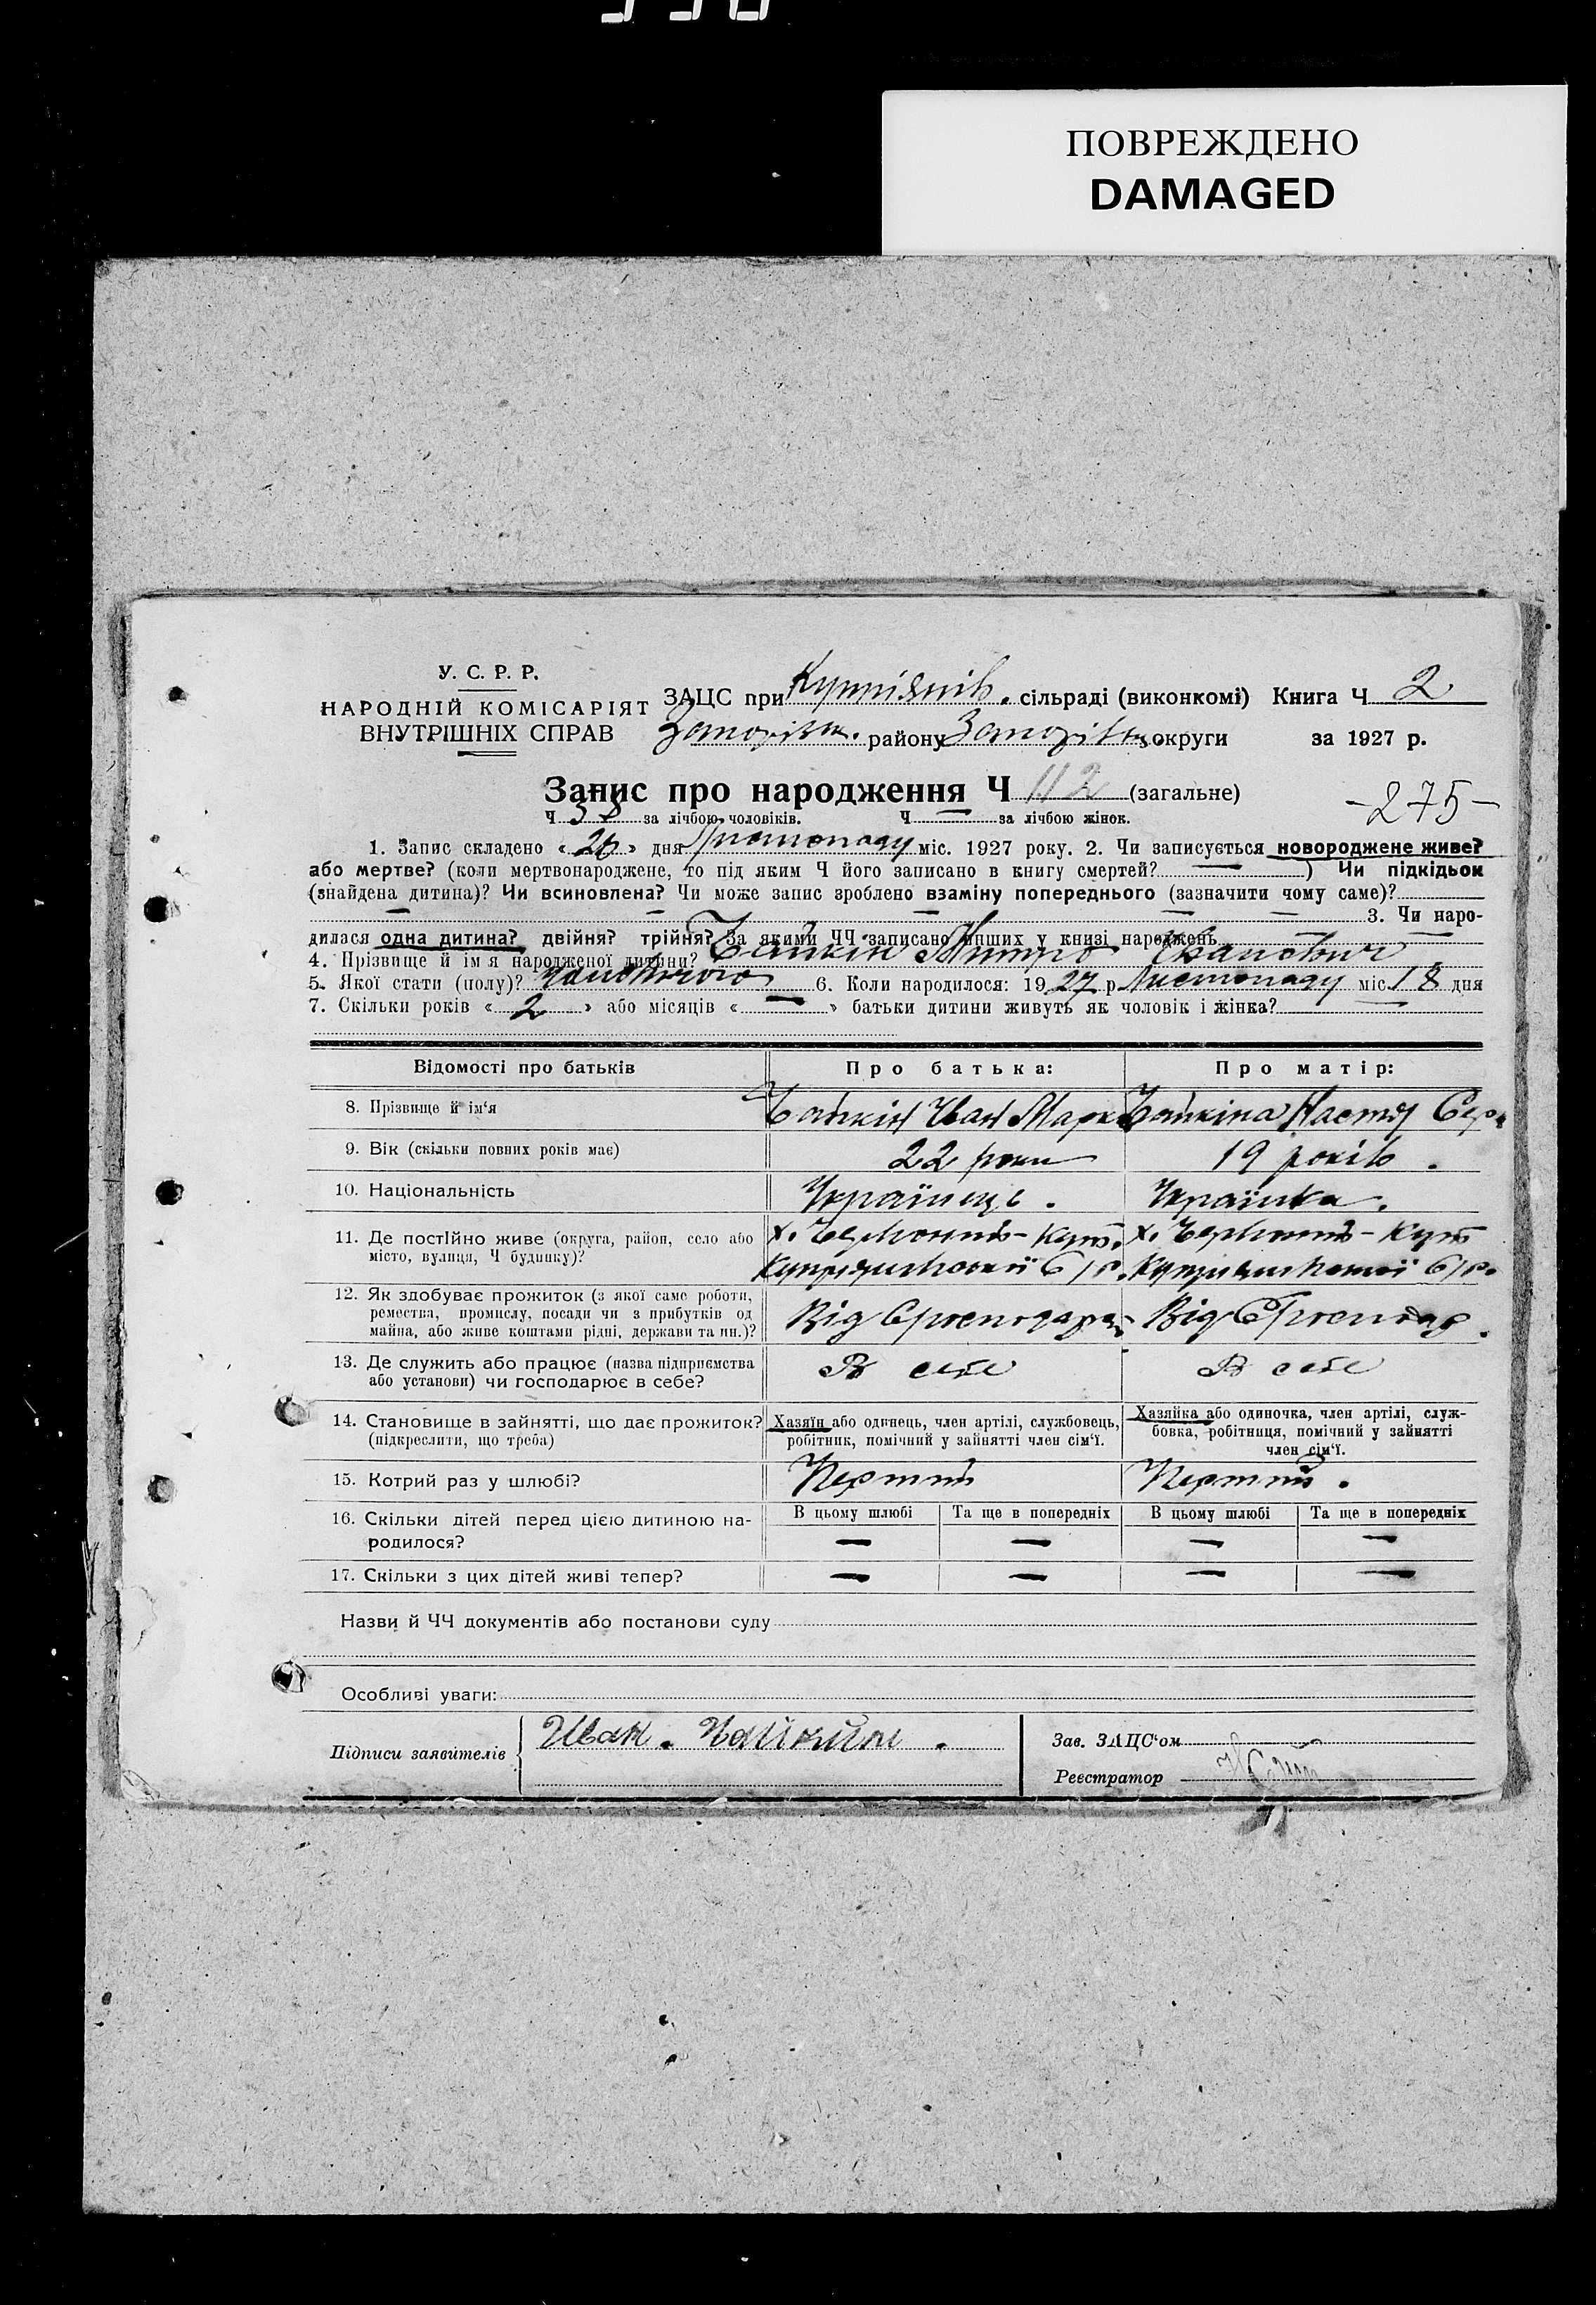 ПОВРЕЖДЕНО
DAMAGED
У. С. Р. Р.
НАРОДНІЙ КОМІСАРІЯТ
ВНУТРІШНІХ СПРАВ
ЗАЦС при Купріянів. сільраді (виконкомі) Книга Ч 2
Запоріз. району Запорізьк. округи за 1927 р.
Запис про народження Ч 112 (загальне)
-275-
Ч 58 за лічбою чоловіків. Ч — за лічбою жінок.
1. Запис складено « 26 » дня Листопаду міс. 1927 року. 2. Чи записується новороджене живе?
або мертве? (коли мертвонароджене, то під яким Ч його записано в книгу смертей? — ) Чи підкідьок
(знайдена дитина)? Чи всиновлена? Чи може запис зроблено взаміну попереднього (зазначити чому саме)?
— — — — — 3. Чи наро-
дилася одна дитина? двійня? трійня? За якими ЧЧ записано інших у книзі народжень —
4. Прізвище й ім'я народженої дитини? Чайкін Митро Іванович
5. Якої стати (полу)? чоловічого 6. Коли народилося: 1927 р. Листопаду міс. 18 дня
7. Скільки років « 2 » або місяців « — » батьки дитини живуть як чоловік і жінка? —
Відомості про батьків Про батька: Про матір:
8. Прізвище й ім'я Чайкін Іван Марк Чайкіна Настя Сер.
9. Вік (скільки повних років має) 22 роки 19 років.
10. Національність Українець. Українка.
11. Де постійно живе (округа, район, село або х. Червоний-Кут. х. Червоний-Кут
місто, вулиця, Ч будинку)? Купріянівської С/р. Купріянівської С/р.
12. Як здобуває прожиток (з якої саме роботи,
ремества, промислу, посади чи з прибутків од Від С/господар. Від С/господар.
майна, або живе коштами рідні, держави та ин.)?
13. Де служить або працює (назва підприємства В себе В себе
або установи) чи господарює в себе?
14. Становище в зайнятті, що дає прожиток? Хазяїн або одинець, член артілі, службовець, Хазяйка або одиночка, член артілі, служ-
(підкреслити, що треба) робітник, помічний у зайнятті член сім'ї. бовка, робітниця, помічний у зайнятті
член сім'ї.
15. Котрий раз у шлюбі? Перший Перший.
16. Скільки дітей перед цією дитиною на- В цьому шлюбі Та ще в попередніх В цьому шлюбі Та ще в попередніх
родилося? — — — —
17. Скільки з цих дітей живі тепер? — — — —
Назви й ЧЧ документів або постанови суду
Особливі уваги:
Підписи заявителів Иван. Чайкин. Зав. ЗАЦС'ом
Реєстратор